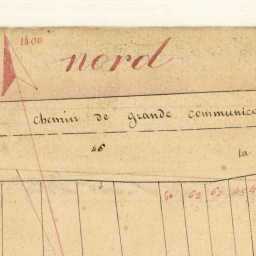 1400
nord
Chemin de grande communica
26
la
60 62 63 65